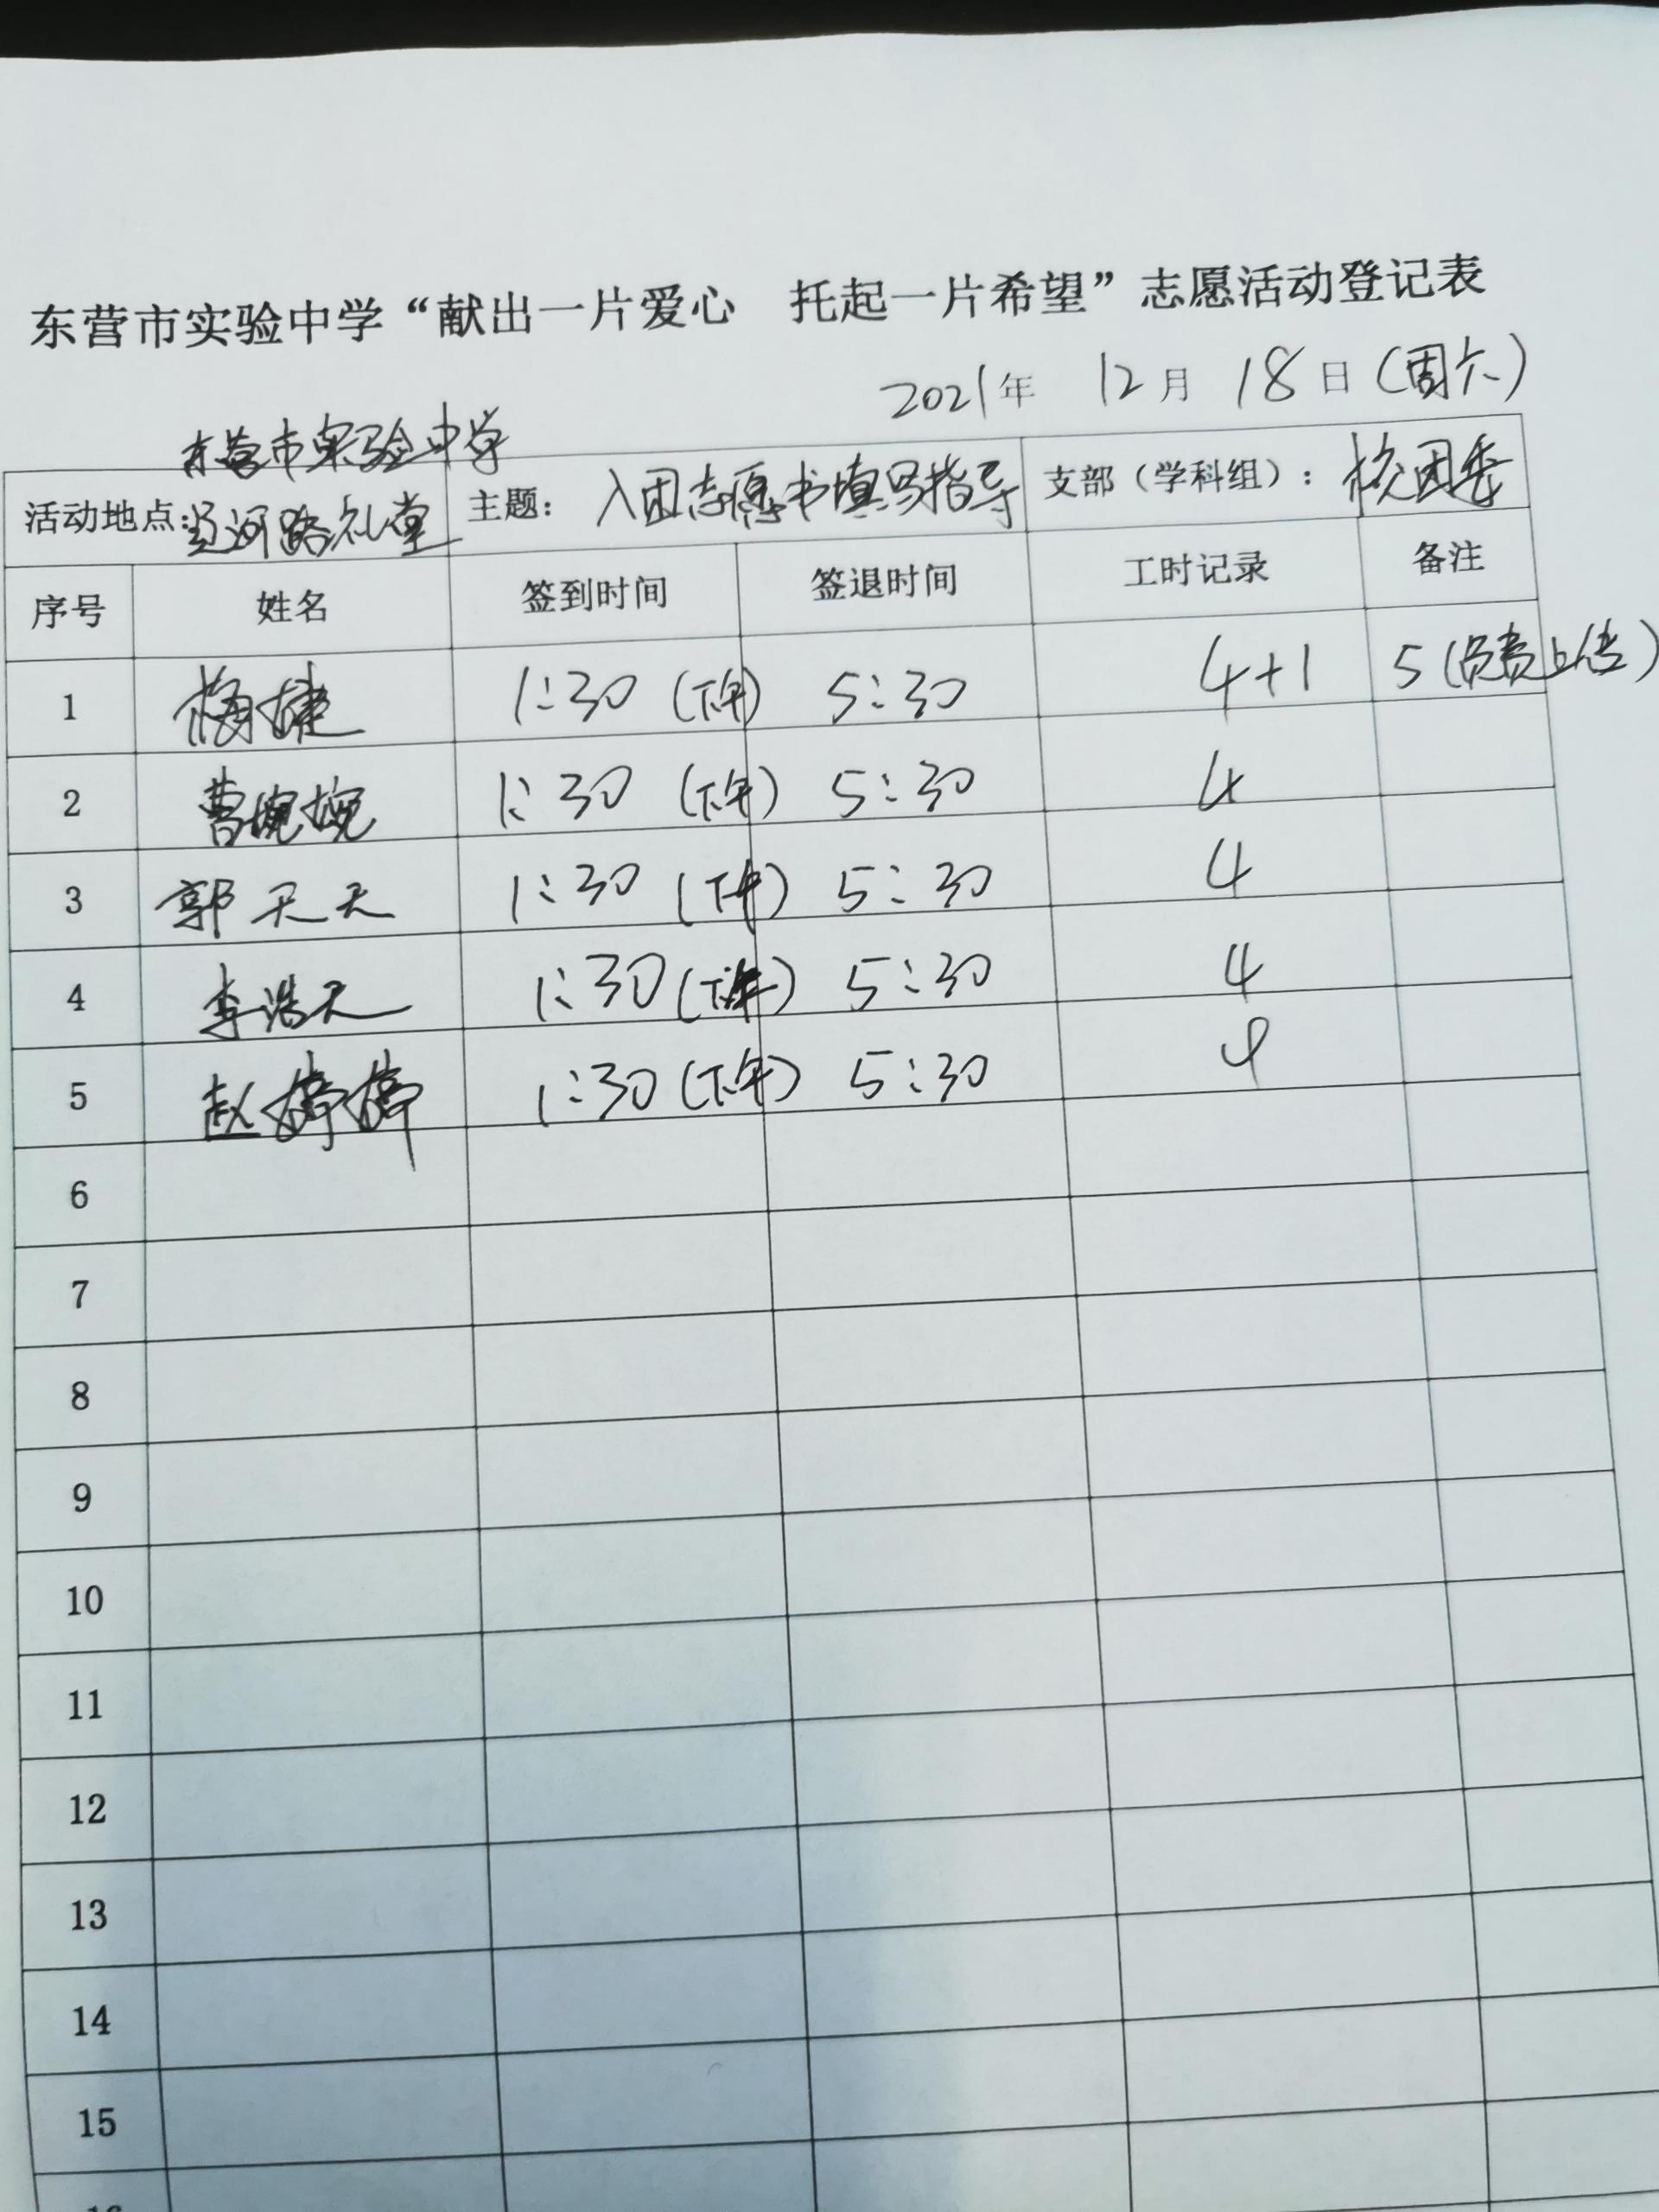 东营市实验中学“献出一片爱心 托起一片希望”志愿活动登记表
2021年 12月 18日(周六)
活动地点: 东营市实验中学 辽河路礼堂 主题: 入团志愿书填写指导 支部（学科组）: 校团委
序号 姓名 签到时间 签退时间 工时记录 备注
1 梅捷 1:30 (下午) 5:30 4+1 5(负责上传)
2 曹婉婉 1:30 (下午) 5:30 4
3 郭天天 1:30 (下午) 5:30 4
4 李浩天 1:30 (下午) 5:30 4
5 赵婷婷 1:30 (下午) 5:30 4
6
7
8
9
10
11
12
13
14
15